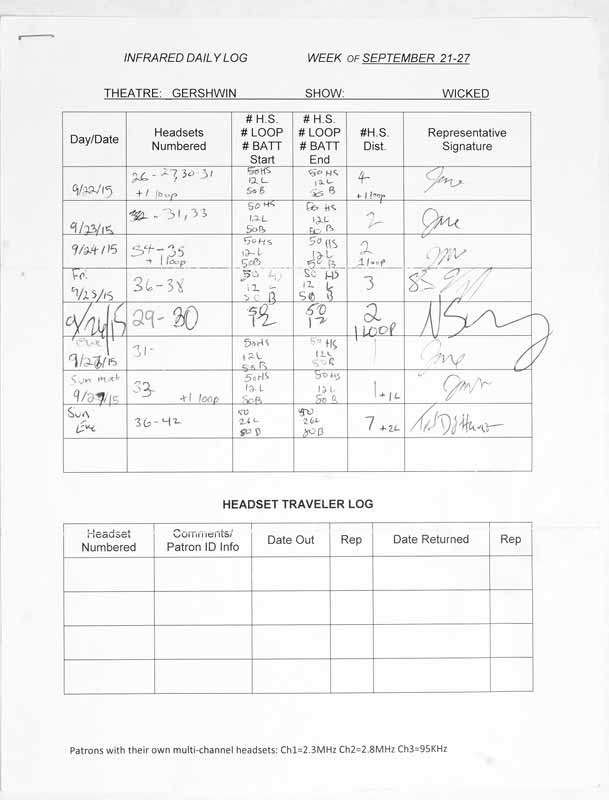 INFRARED DAILY LOG WEEK OF SEPTEMBER 21-27
THEATRE: GERSHWIN SHOW: WICKED
Day/Date Headsets Numbered # H.S. # LOOP # BATT Start # H.S. # LOOP # BATT End #H.S. Dist. Representative Signature
9/22/15 26-27,30-31 +1 loop 50HS 12L 50B 50HS 12L 50B 4 +1 loop
9/23/15 31,33 50HS 12L 50B 50 HS 12L 50 B 2
9/24/15 34-35 +1 loop 50HS 12L 50B 50 HS 12L 50 B 2 1 loop
Fri 9/25/15 36-38 50 H 12 L 50 B 50 HS 12 L 50 B 3
9/26/15 29-30 50 12 50 12 2 1 LOOP
Eve 31- 50HS 12L 50B 50 HS 12L 50B 1
Sun mat 9/27/15 33 +1 loop 50HS 12L 50B 50HS 12L 50 B 1+1L
Sun Eve 36-42 50 26L 50B 50 26L 50B 7 +2L
HEADSET TRAVELER LOG
Headset Numbered Comments/ Patron ID Info Date Out Rep Date Returned Rep
Patrons with their own multi-channel headsets: Ch1=2.3MHz Ch2=2.8MHz Ch3=95KHz